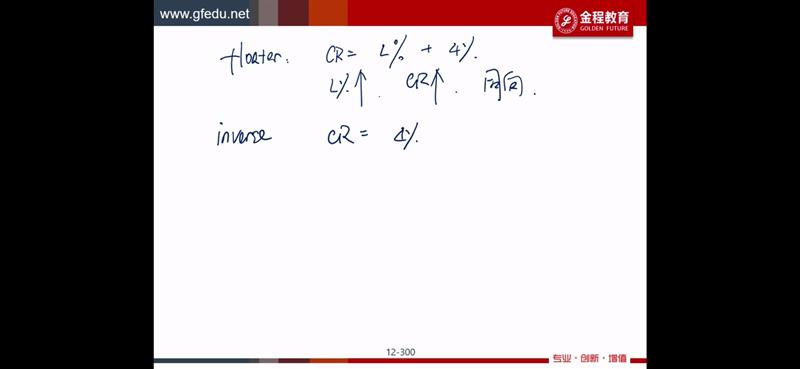 www.gfedu.net
金程教育
GOLDEN FUTURE
floater: CR = L% + 4%.
L%↑. CR↑. 同向.
inverse CR = 4%
12-300
专业·创新·增值